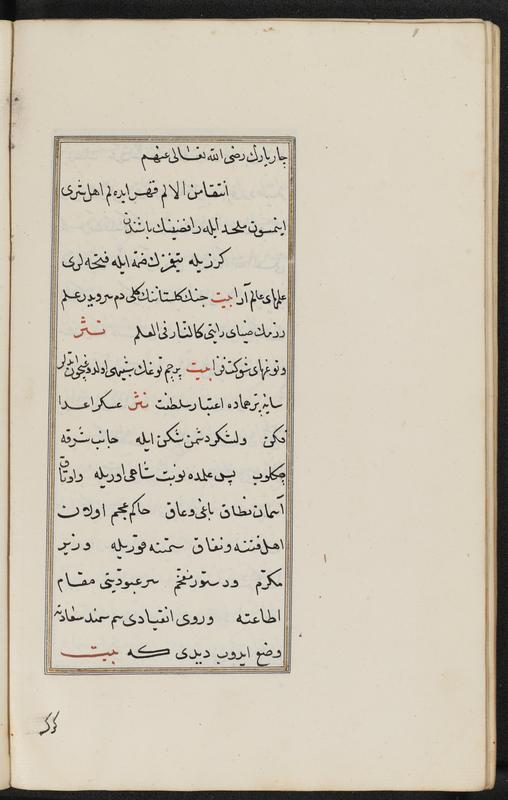 چاریارك رضی الله تعالی عنهم
انتقامن الالم قهر ایده لم اهل شری
ایتمسون ملحد ایله رافضینك باشدن
كرزیله تیمزك ضه ایله فتحه لری
علمهای عالم آرا بیت جنك كلستاننك كلی دم سرویدر علم
رزمك ضیای رایتی كالنار فی العلم نثر
وتوغهای شوكت فزا بیت پرچم توغك شبیهی اولدوغیچون
سایهٔ پرهماده اعتبار سلطنت نثر عسكر اعدا
فكن ولشكر دشمن شكن ایله جانب شرقه
چكلوب پس علمده نوبت شاهی اوریله واوتاق
آسمان نطاق باغی وعاق حاكم عجم اولان
اهل فتنه ونفاق سمتنه قوریله وزیر
مكرم ودستور مفخم سر عبودیتی مقام
اطاعته وروی انقیادی سم سمند سعادته
وضع ایدوب دیدی كه بیت